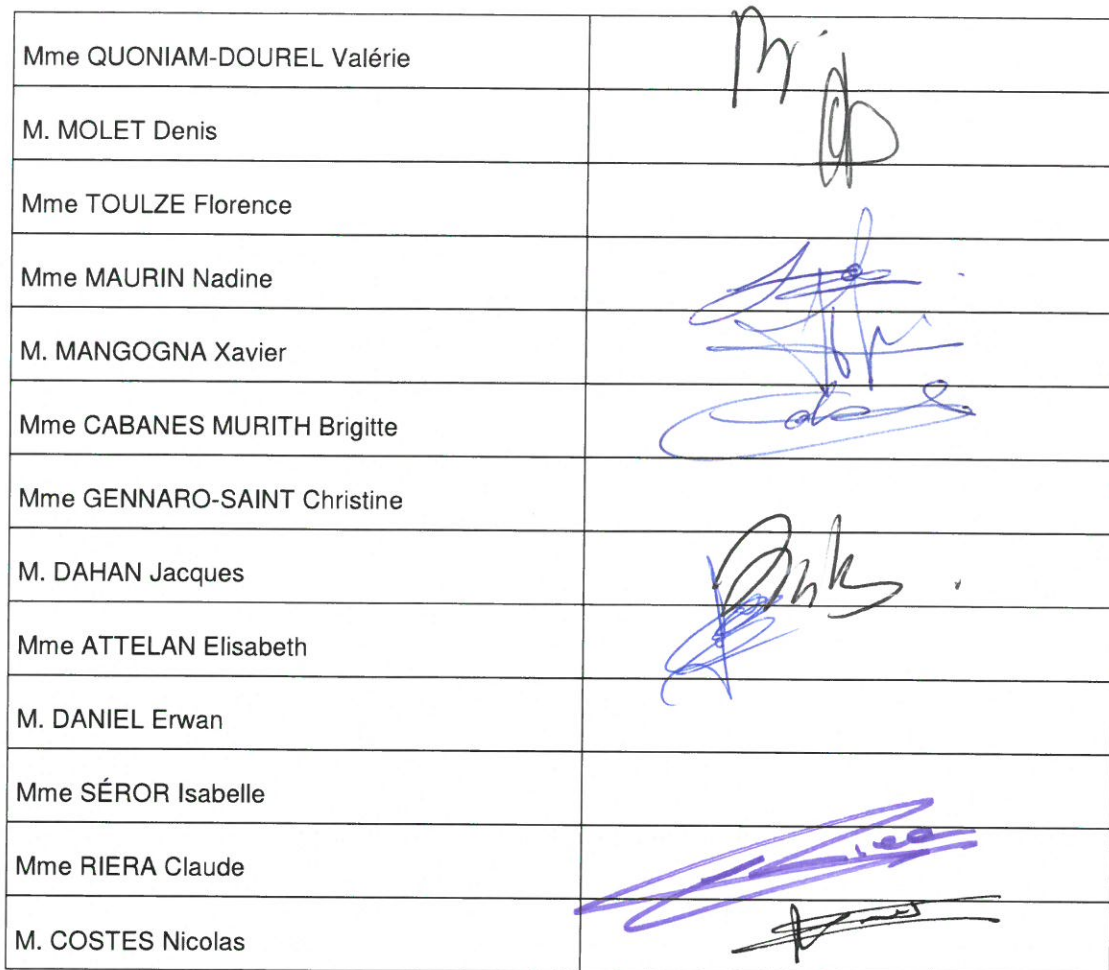 Mme QUONIAM-DOUREL Valérie
M. MOLET Denis
Mme TOULZE Florence
Mme MAURIN Nadine
M. MANGOGNA Xavier
Mme CABANES MURITH Brigitte
Mme GENNARO-SAINT Christine
M. DAHAN Jacques
Mme ATTELAN Elisabeth
M. DANIEL Erwan
Mme SÉROR Isabelle
Mme RIERA Claude
M. COSTES Nicolas